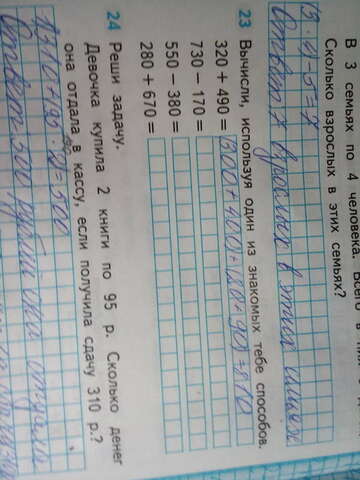 В 3 семьях по 4 человека. Всего в
Сколько взрослых в этих семьях?
·4-5=7
Ответ 7 взрослых в этих семьях
23 Вычисли, используя один из знакомых тебе способов.
320 + 490 = (300+400)+(20+90)=810
730 − 170 =
550 − 380 =
280 + 670 =
24 Реши задачу.
Девочка купила 2 книги по 95 р. Сколько денег
она отдала в кассу, если получила сдачу 310 р.?
310+ · 2=500
Ответ 500 рублей она отдала